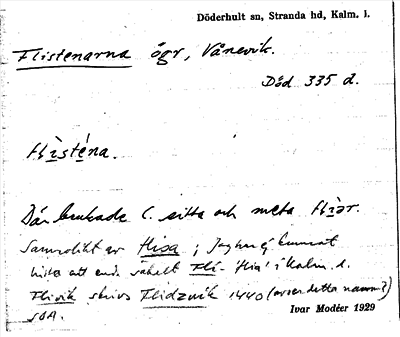 Döderhult sn, Stranda hd, Kalm. l.
Flistenarna ögr, Vånevik.
Död 335 d.
flìsténa.
Där brukade l. sitta och meta flìsr.
Samvolikt av flisa; Jag har ej kunnat
hitta att end. såkelt Fli- 'flisa' i Kalm. l.
Flivik skrivs Flidzwik 1440 (avser detta namn?)
SOA.
Ivar Modéer 1929